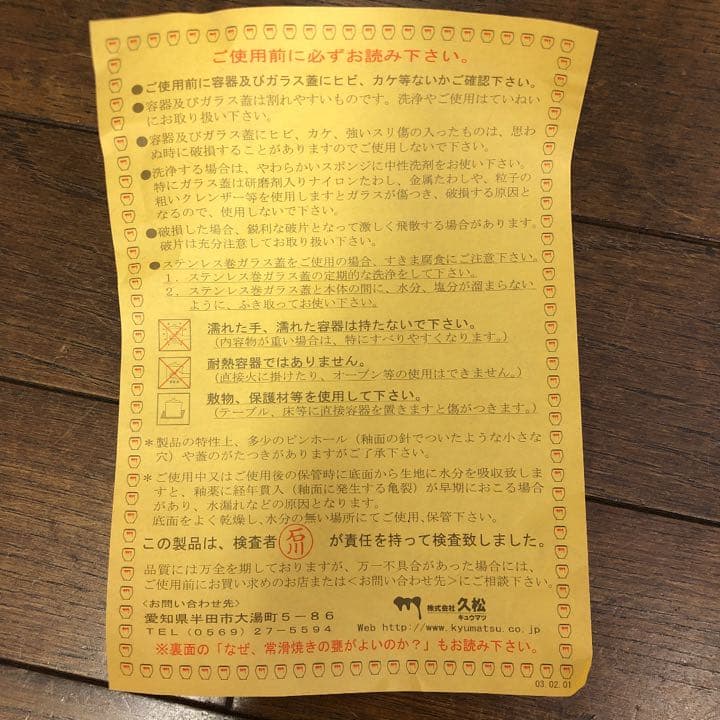 ご使用前に必ずお読み下さい。
●ご使用前に容器及びガラス蓋にヒビ、カケ等ないかご確認下さい。
●容器及びガラス蓋は割れやすいものです。洗浄やご使用はていねい
にお取り扱い下さい。
●容器及びガラス蓋にヒビ、カケ、強いスリ傷の入ったものは、思わ
ぬ時に破損することがありますのでご使用しないで下さい。
●洗浄する場合は、やわらかいスポンジに中性洗剤をお使い下さい。
特にガラス蓋は研磨剤入りナイロンたわし、金属たわしや、粒子の
粗いクレンザー等を使用しますとガラスが傷つき、破損する原因と
なるので、使用しないで下さい。
●破損した場合、鋭利な破片となって激しく飛散する場合があります。
破片は充分注意してお取り扱い下さい。
●ステンレス巻ガラス蓋をご使用の場合、すきま腐食にご注意下さい。
１．ステンレス巻ガラス蓋の定期的な洗浄をして下さい。
２．ステンレス巻ガラス蓋と本体の間に、水分、塩分が溜まらない
ように、ふき取ってお使い下さい。
濡れた手、濡れた容器は持たないで下さい。
（内容物が重い場合は、特にすべりやすくなります。）
耐熱容器ではありません。
（直接火に掛けたり、オーブン等の使用はできません。）
敷物、保護材等を使用して下さい。
（テーブル、床等に直接容器を置きますと傷がつきます。）
＊製品の特性上、多少のピンホール（釉面の針でついたような小さな
穴）や蓋のがたつきがありますがご了承下さい。
＊ご使用中又はご使用後の保管時に底面から生地に水分を吸収致しま
すと、釉薬に経年貫入（釉面に発生する亀裂）が早期におこる場合
があり、水漏れなどの原因となります。
底面をよく乾燥し、水分の無い場所にてご使用、保管下さい。
この製品は、検査者 石川 が責任を持って検査致しました。
品質には万全を期しておりますが、万一不具合があった場合には、
ご使用前にお買い求めのお店または＜お問い合わせ先＞にご相談下さい。
＜お問い合わせ先＞
愛知県半田市大湯町５－８６
ＴＥＬ（０５６９）２７－５５９４
株式会社 久松
キュウマツ
Web http://www.kyumatsu.co.jp
※裏面の「なぜ、常滑焼きの甕がよいのか？」もお読み下さい。
03.02.01